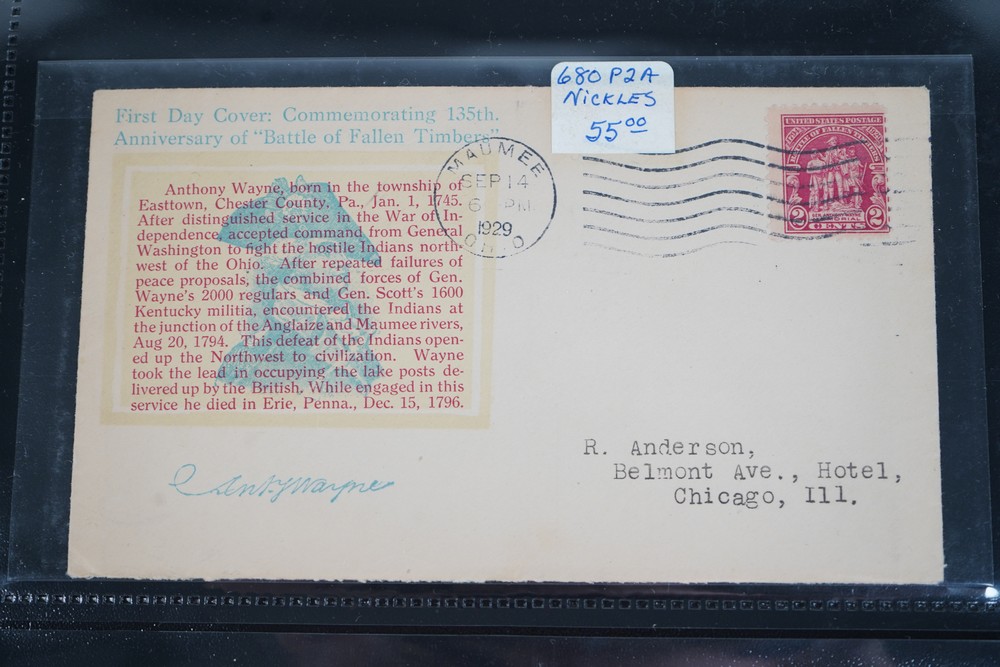 680 P2A
NICKLES
55.00
First Day Cover: Commemorating 135th.
Anniversary of "Battle of Fallen Timbers"
Anthony Wayne, born in the township of
Easttown, Chester County, Pa., Jan. 1, 1745.
After distinguished service in the War of In-
dependence, accepted command from General
Washington to fight the hostile Indians north-
west of the Ohio. After repeated failures of
peace proposals, the combined forces of Gen.
Wayne's 2000 regulars and Gen. Scott's 1600
Kentucky militia, encountered the Indians at
the junction of the Anglaize and Maumee rivers,
Aug 20, 1794. This defeat of the Indians open-
ed up the Northwest to civilization. Wayne
took the lead in occupying the lake posts de-
livered up by the British. While engaged in this
service he died in Erie, Penna., Dec. 15, 1796.
Anty Wayne
MAUMEE
SEP 14
6 PM
1929
OHIO
UNITED STATES POSTAGE
BATTLE OF FALLEN TIMBERS
2 2
CENTS
R. Anderson,
Belmont Ave., Hotel,
Chicago, Ill.